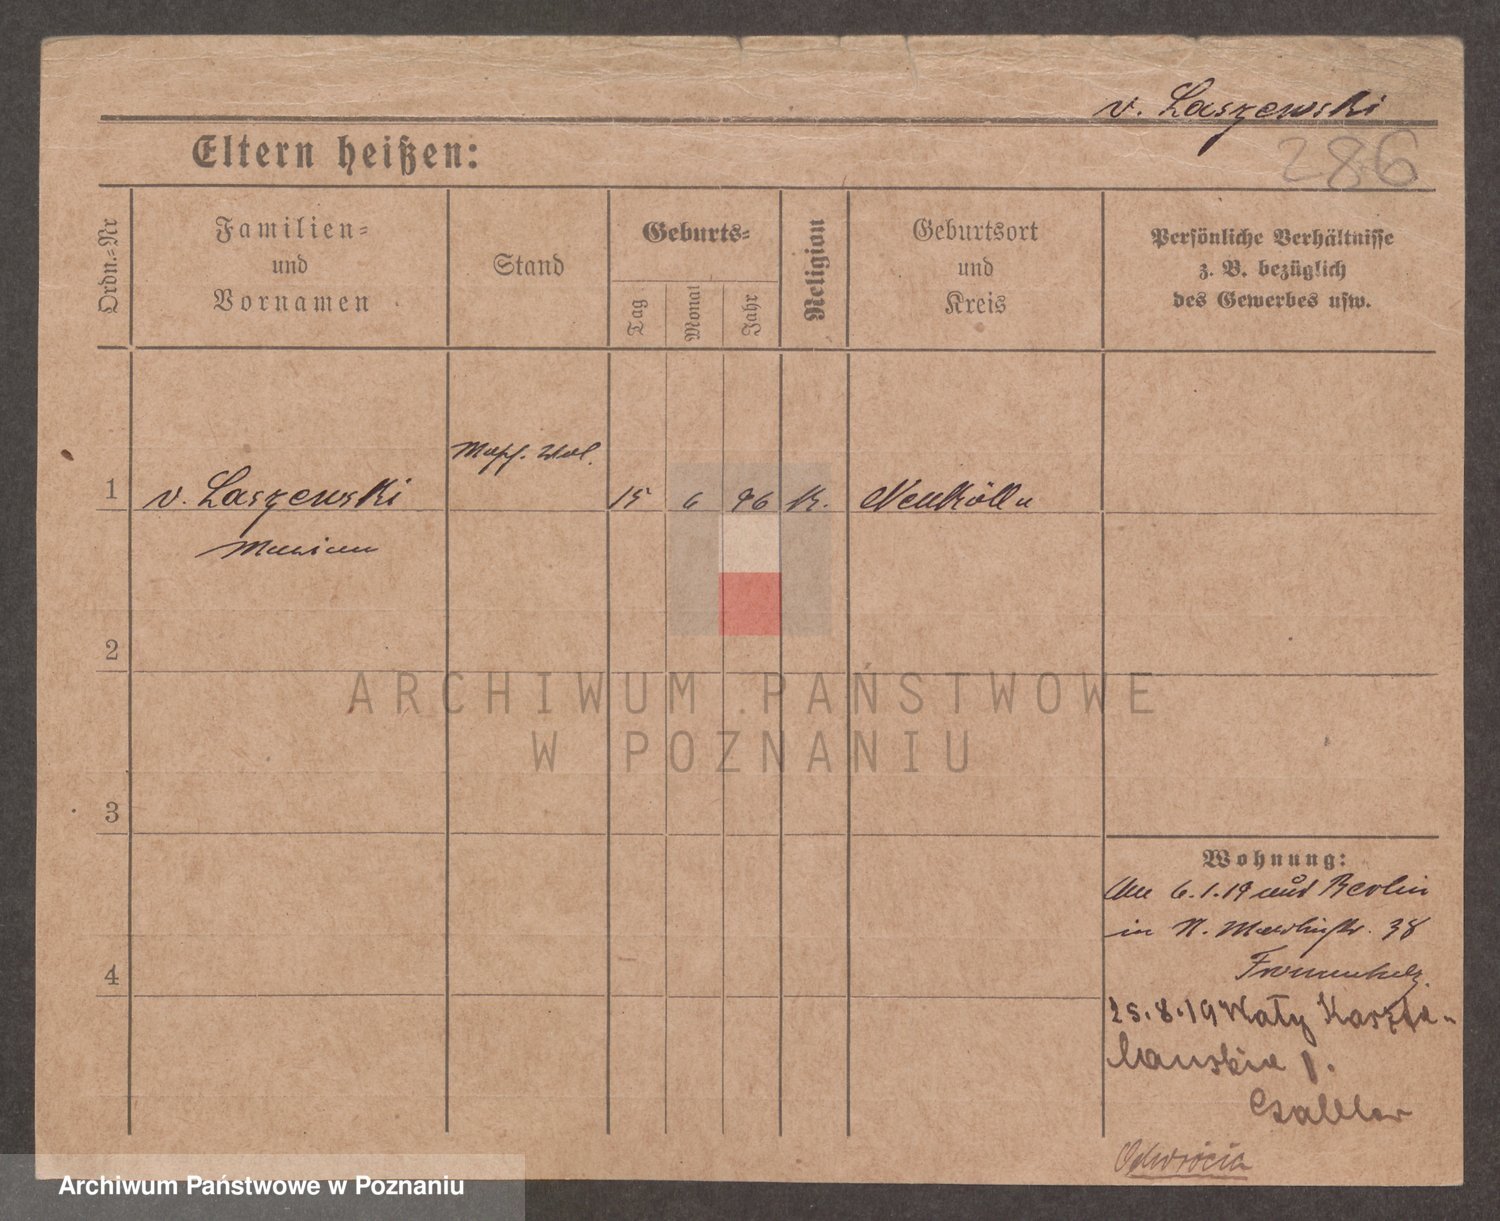 v. Laszewski
286
Eltern heißen:
Ordn.-Nr
Familien-
und
Vornamen
Stand
Geburts-
Tag
Monat
Jahr
Religion
Geburtsort
und
Kreis
Persönliche Verhältnisse
z. B. bezüglich
des Gewerbes usw.
1
v. Laszewski
15
6
96
K.
Neukölln
2
ARCHIWUM PAŃSTWOWE
W POZNANIU
3
Wohnung:
6.1.19 Berlin
in 38
4
25.8.19 Wały
Odwrócić
Archiwum Państwowe w Poznaniu